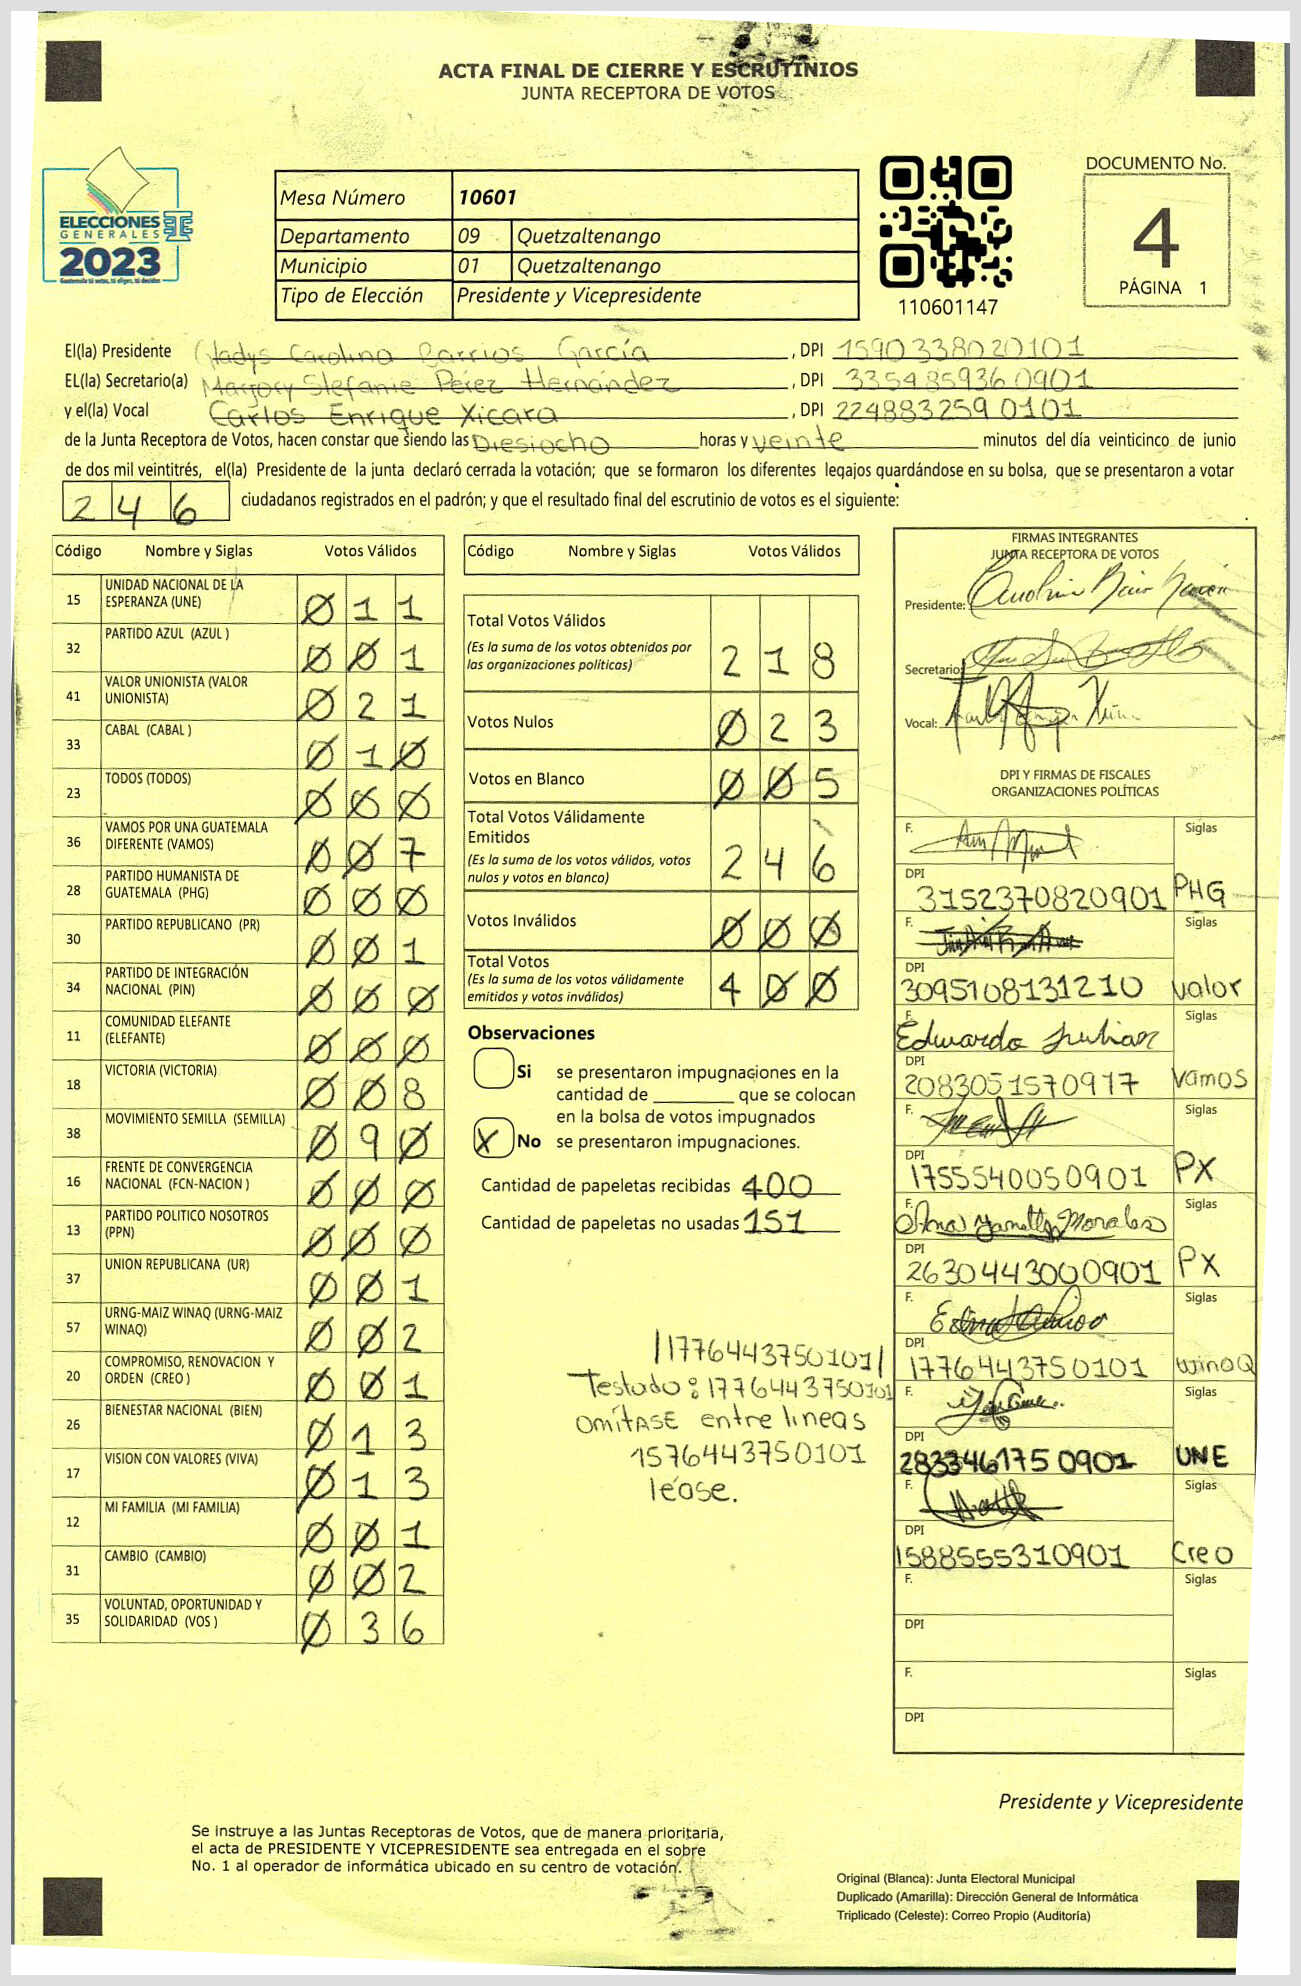 ACTA FINAL DE CIERRE Y ESCRUTINIOS
JUNTA RECEPTORA DE VOTOS
ELECCIONES
GENERALES
2023
Mesa Número 10601
Departamento 09 Quetzaltenango
Municipio 01 Quetzaltenango
Tipo de Elección Presidente y Vicepresidente
110601147
DOCUMENTO No.
4
PÁGINA 1
El(la) Presidente Gladys Carolina Barrios García , DPI 1590338020101
EL(la) Secretario(a) Marjory Stefanie Pérez Hernández , DPI 335485936 0901
y el(la) Vocal Carlos Enrique Xicara , DPI 224883259 0101
de la Junta Receptora de Votos, hacen constar que siendo las Diesiocho horas y veinte minutos del día veinticinco de junio
de dos mil veintitrés, el(la) Presidente de la junta declaró cerrada la votación; que se formaron los diferentes legajos guardándose en su bolsa, que se presentaron a votar
246 ciudadanos registrados en el padrón; y que el resultado final del escrutinio de votos es el siguiente:
Código Nombre y Siglas Votos Válidos
15 UNIDAD NACIONAL DE LA ESPERANZA (UNE) 011
32 PARTIDO AZUL (AZUL ) 001
41 VALOR UNIONISTA (VALOR UNIONISTA) 021
33 CABAL (CABAL ) 010
23 TODOS (TODOS) 000
36 VAMOS POR UNA GUATEMALA DIFERENTE (VAMOS) 007
28 PARTIDO HUMANISTA DE GUATEMALA (PHG) 000
30 PARTIDO REPUBLICANO (PR) 001
34 PARTIDO DE INTEGRACIÓN NACIONAL (PIN) 000
11 COMUNIDAD ELEFANTE (ELEFANTE) 000
18 VICTORIA (VICTORIA) 008
38 MOVIMIENTO SEMILLA (SEMILLA) 090
16 FRENTE DE CONVERGENCIA NACIONAL (FCN-NACION ) 000
13 PARTIDO POLITICO NOSOTROS (PPN) 000
37 UNION REPUBLICANA (UR) 001
57 URNG-MAIZ WINAQ (URNG-MAIZ WINAQ) 002
20 COMPROMISO, RENOVACION Y ORDEN (CREO ) 001
26 BIENESTAR NACIONAL (BIEN) 013
17 VISION CON VALORES (VIVA) 013
12 MI FAMILIA (MI FAMILIA) 001
31 CAMBIO (CAMBIO) 002
35 VOLUNTAD, OPORTUNIDAD Y SOLIDARIDAD (VOS ) 036
Código Nombre y Siglas Votos Válidos
Total Votos Válidos
(Es la suma de los votos obtenidos por
las organizaciones políticas) 218
Votos Nulos 023
Votos en Blanco 005
Total Votos Válidamente
Emitidos
(Es la suma de los votos válidos, votos
nulos y votos en blanco) 246
Votos Inválidos 000
Total Votos
(Es la suma de los votos válidamente
emitidos y votos inválidos) 400
Observaciones
Si se presentaron impugnaciones en la
cantidad de ________ que se colocan
en la bolsa de votos impugnados
X No se presentaron impugnaciones.
Cantidad de papeletas recibidas 400
Cantidad de papeletas no usadas 151
|1776443750101|
Testado: 1776443750101
OMÍTASE entre lineas
1576443750101
léase.
FIRMAS INTEGRANTES
JUNTA RECEPTORA DE VOTOS
Presidente:
Secretario:
Vocal:
DPI Y FIRMAS DE FISCALES
ORGANIZACIONES POLÍTICAS
F. Siglas
DPI 3152370820901 PHG
F. Siglas
DPI 3095108131210 valor
F. Eduardo Julian Siglas
DPI 2083051570917 vamos
F. Siglas
DPI 1755540050901 PX
F. Ana Yanetts Morales Siglas
DPI 2630443000901 PX
F. Siglas
DPI 1776443750101 WINAQ
F. Siglas
DPI 2833461750901 UNE
F. Siglas
DPI 1588555310901 Creo
F. Siglas
DPI
F. Siglas
DPI
Presidente y Vicepresidente
Se instruye a las Juntas Receptoras de Votos, que de manera prioritaria,
el acta de PRESIDENTE Y VICEPRESIDENTE sea entregada en el sobre
No. 1 al operador de informática ubicado en su centro de votación.
Original (Blanca): Junta Electoral Municipal
Duplicado (Amarilla): Dirección General de Informática
Triplicado (Celeste): Correo Propio (Auditoría)